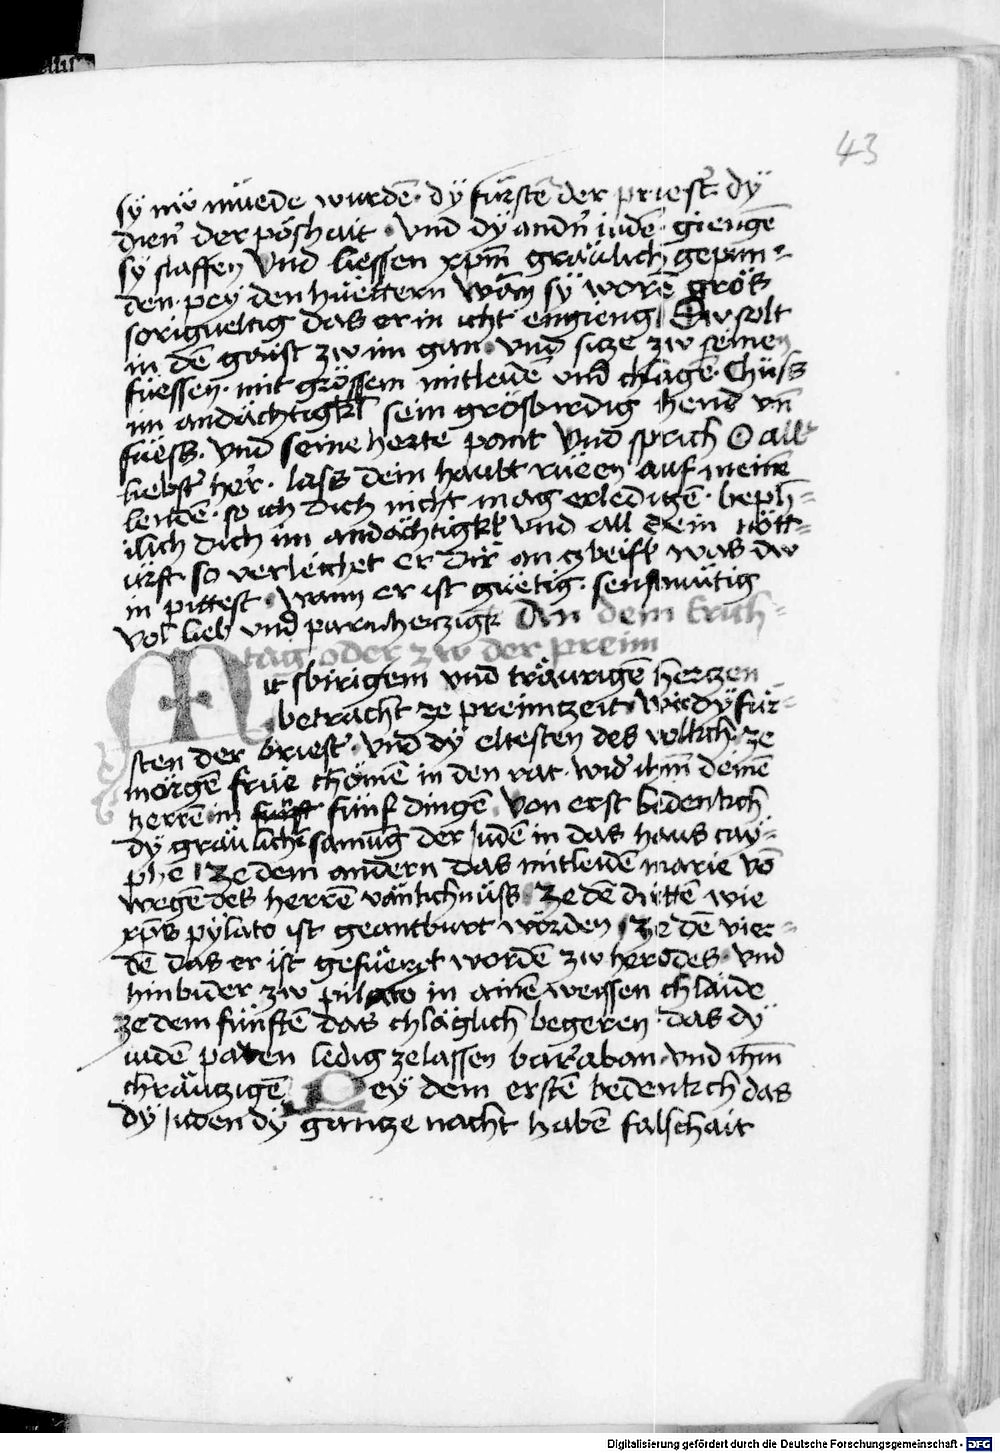 43
sÿ nw müede wurdē · dÿ fürstē der priestˀ dÿ
dienˀ der pöshait · vnd dÿ andn̄ iudē · giengē
sÿ slaffen vnd liessen xp̄m gräulich gepun-
den · peÿ den hüettern wān sÿ worē grös
sorigueltig das er in icht engieng Dw solt
in dē gaist zw im gan · vnd sitze zw seinen
füessen · mit grössem mitleidē vnd chlagē · Chüss
im andächtigkl sein grösbirdig hend vn̄
füess · vnd seine herte pant vnd sprich O aller
liebstˀ herˀ · lass dein haubt rüeen auf meinē
lendē · so ich dich nicht mag erledigē · beph-
ilich dich im andächtigkl vnd all dein nött-
ürft so verleichet er dir an zbeifl was dw
in pittest · wann er ist güetig · senftmütig
vol lieb vnd parmhertzigk An dem Erich-
tag oder zw der preim
Mit sbirigem vnd träurigē hertzen
betracht ze preimtzeit · wie dÿ für-
sten der briestˀ · vnd dÿ eltesten des volkch · ze
morgē frue chömē in den rat · widˀ ihm̄ deinē
herrē in fünf dingē · Von erst bedenkch
dÿ gräulichē samūg der Judē in das haus cay-
phe / Ze dem andern das mitleidē marie vō
wegē des herrē väntichnüss · Ze dē drittē wie
xp̄s pÿlato ist geantburt wördē / Ze dē vier-
dē das er ist gefüeret wordē zw herodes · vnd
hinbider zw pilato in ainē weyssen chlaide
ze dem fünftē das chläglich begeren das dÿ
iudē paten ledig ze lassen barraban · vnd ihm̄
chräutzigē Pey dem erstē bedenkch das
dÿ Juden dÿ gantze nacht habē falschait
Digitalisierung gefördert durch die Deutsche Forschungsgemeinschaft - DFG